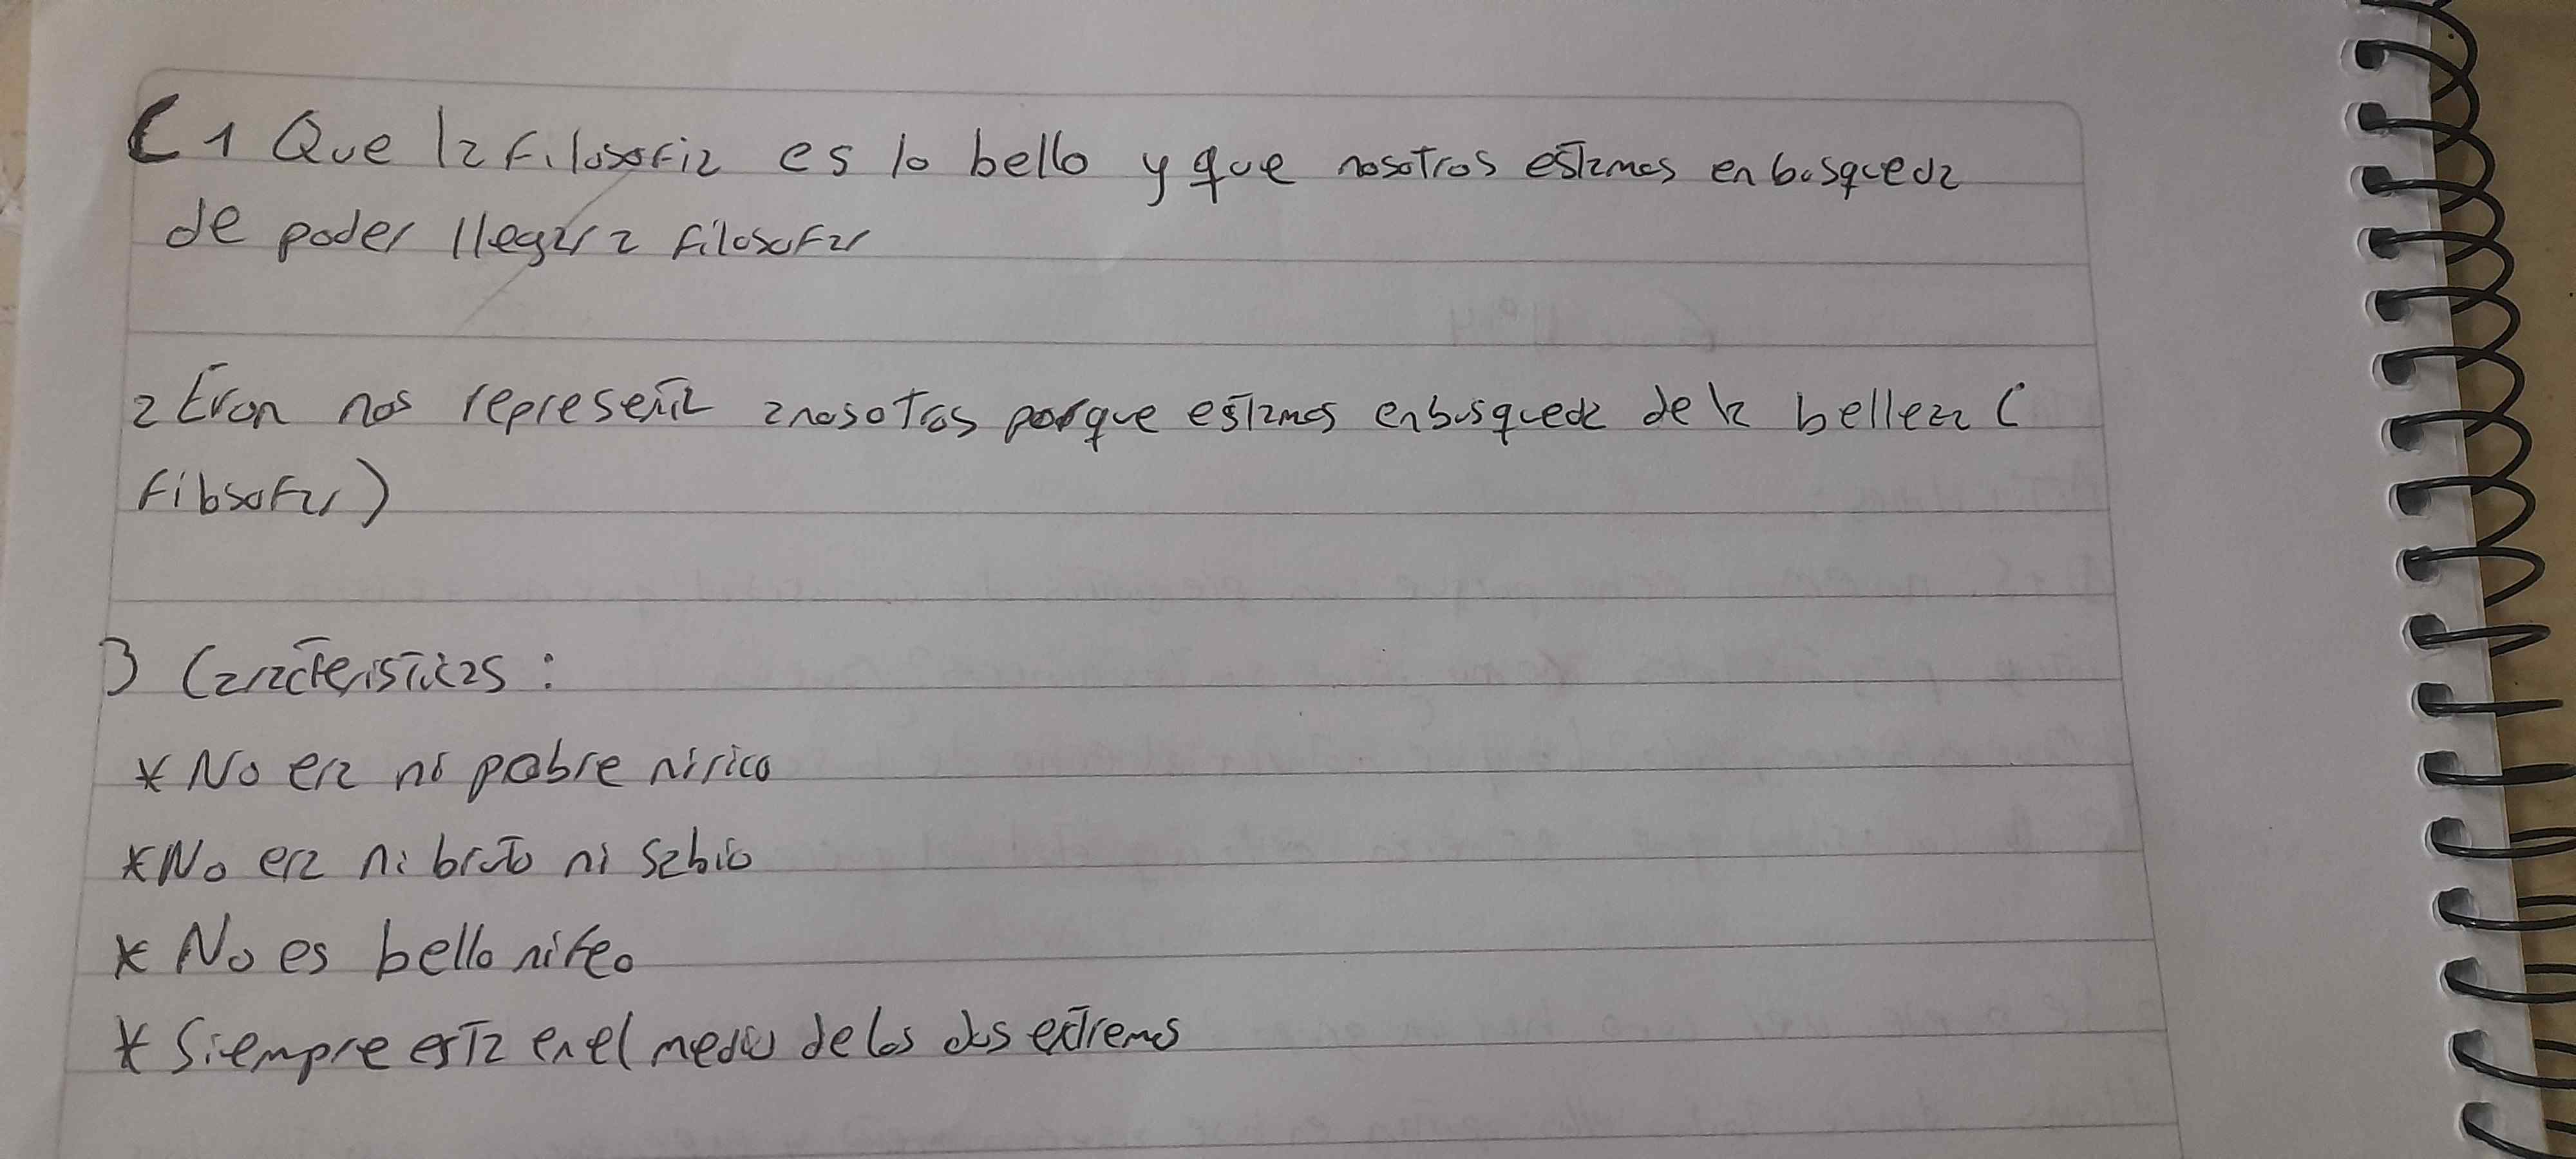 C 1 Que la filosofia es lo bello y que nosotros estamos en busqueda
de poder llegar a filosofar
2 Eron nos representa a nosotros porque estamos en busqueda de la belleza (
filosofar)
3 Caracteristicas :
* No era ni pobre ni rico
* No era ni bruto ni sabio
* No es bello ni feo
* Siempre esta en el medio de los dos extremos